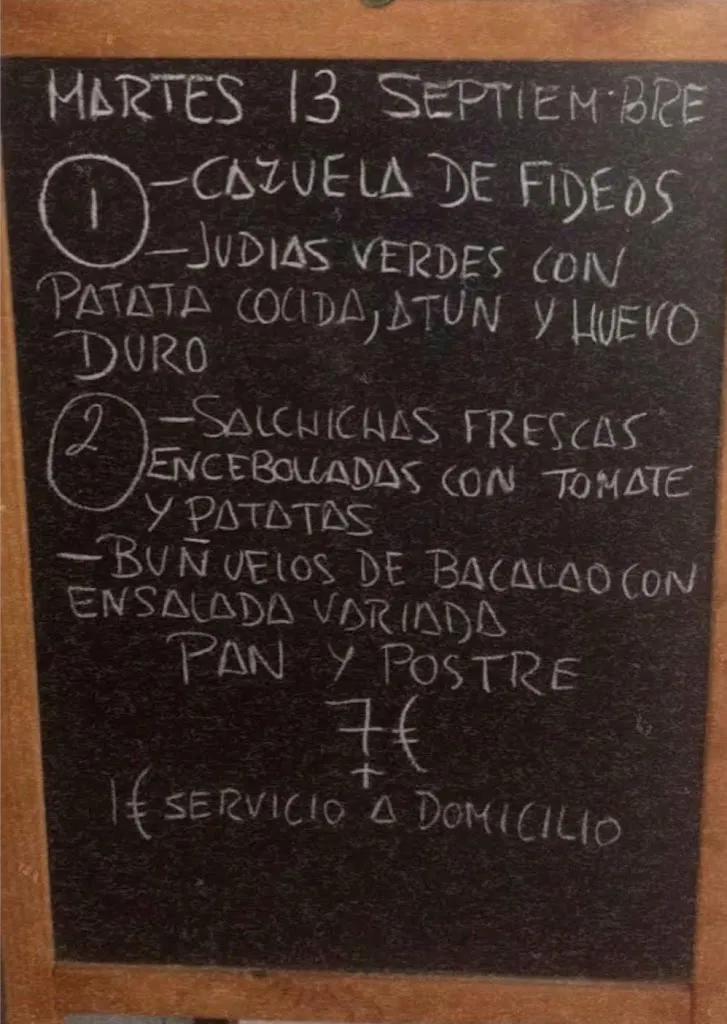 MARTES 13 SEPTIEMBRE
1 -CAZUELA DE FIDEOS
-JUDIAS VERDES CON
PATATA COCIDA, ATUN Y HUEVO
DURO
2 -SALCHICHAS FRESCAS
ENCEBOLLADAS CON TOMATE
Y PATATAS
-BUÑUELOS DE BACALAO CON
ENSALADA VARIADA
PAN Y POSTRE
7€
+
1€ SERVICIO A DOMICILIO